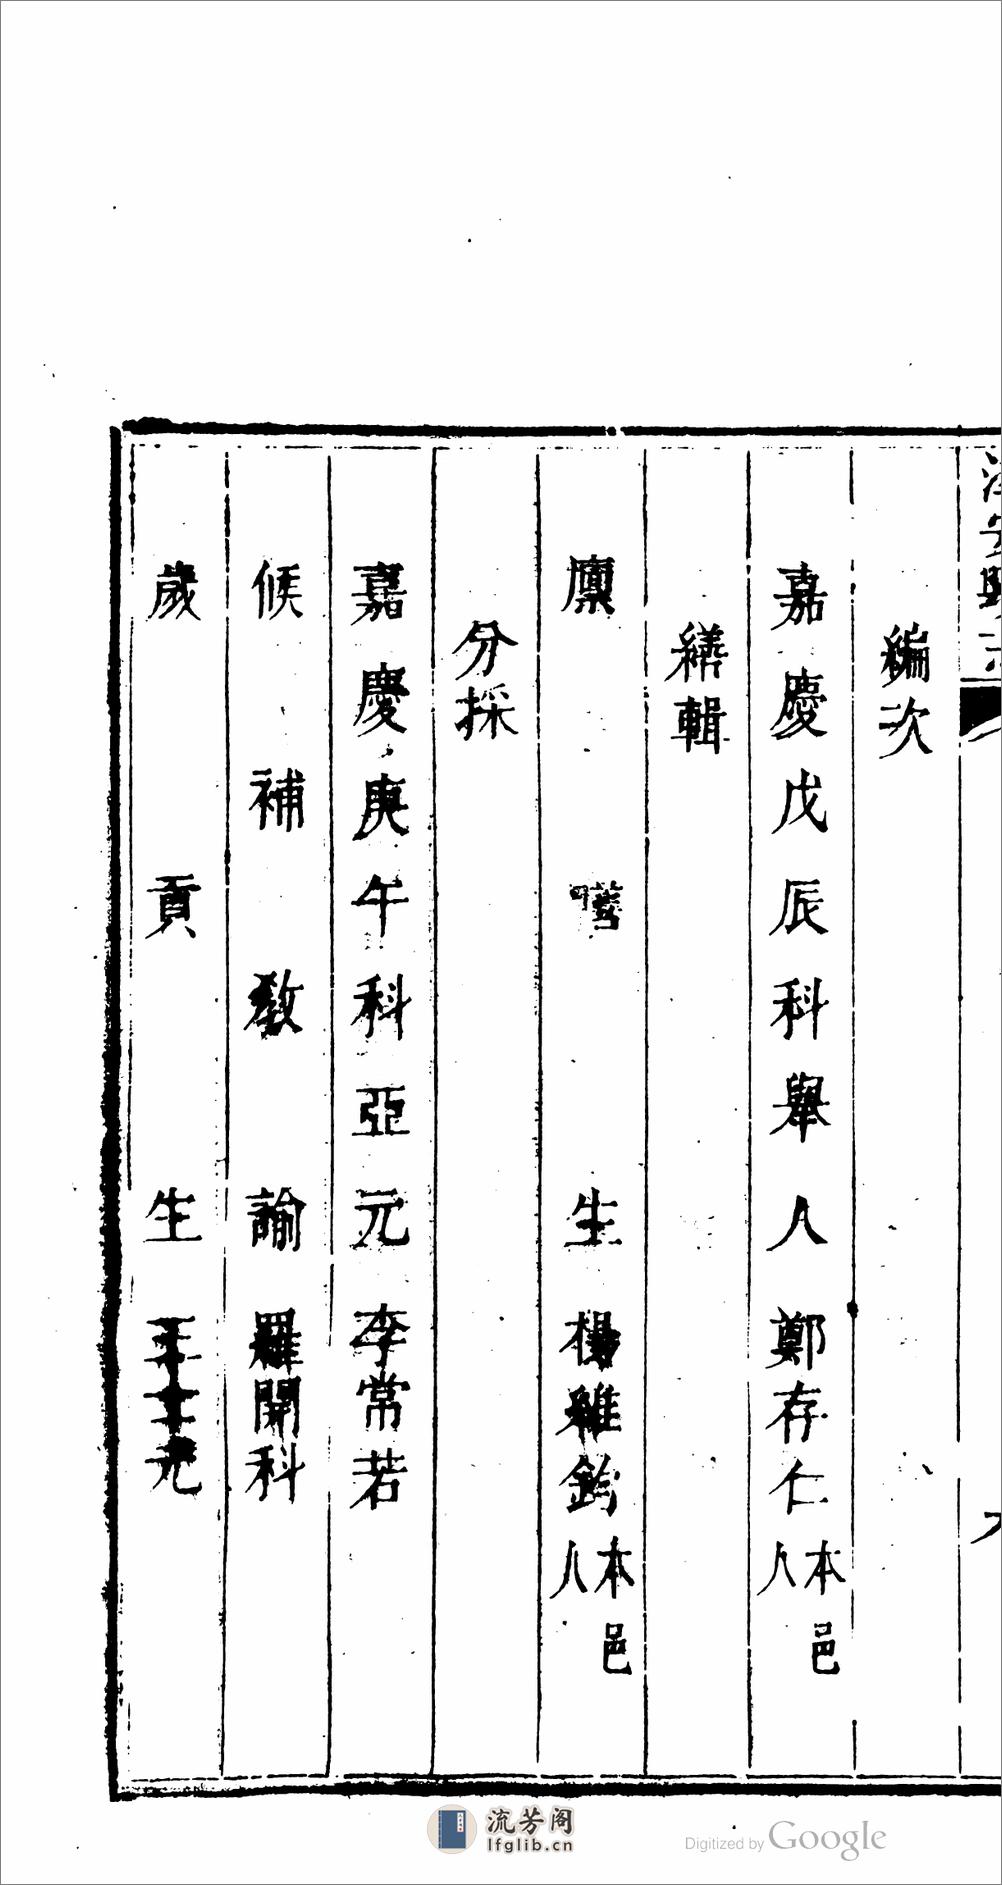 編次
嘉慶戊辰科舉人鄭存仁本邑人
繕輯
廩 生楊維鈞本邑人
分採
嘉慶庚午科亞元李常若
候補教諭羅開科
歲貢生
流芳阁
lfglib.cn
Digitized by Google